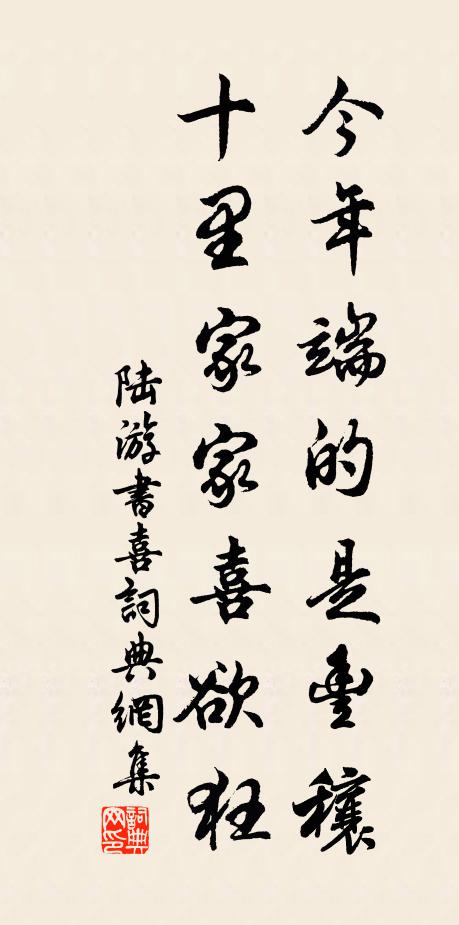 今年端的是豐穰
十里家家喜欲狂
陆游書喜詞典網集
詞典网印